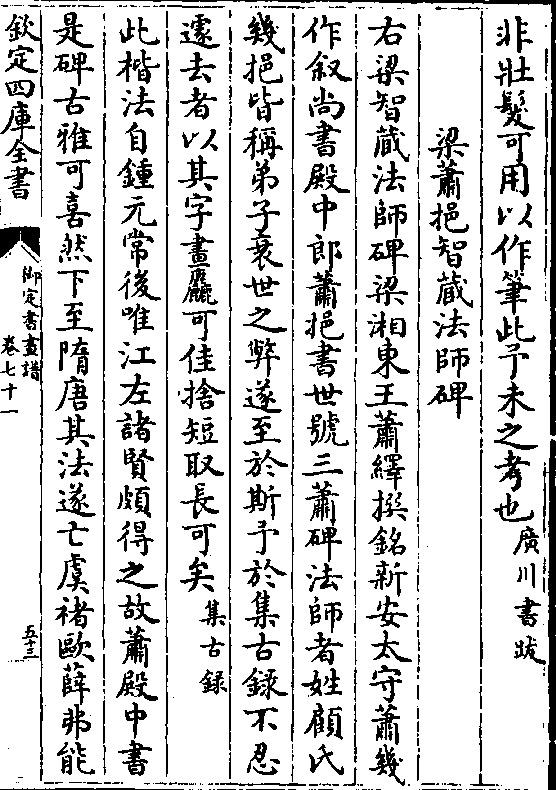 非壯髮可用以作筆此予未之考也廣川書跋
梁蕭挹智藏法師碑
右梁智藏法師碑梁湘東王蕭繹撰銘新安太守蕭幾
作叙尚書殿中郎蕭挹書世號三蕭碑法師者姓顧氏
幾挹皆稱弟子衰世之弊遂至於斯予於集古録不忍
遽去者以其字畫麤可佳捨短取長可矣集古録
此楷法自鍾元常後唯江左諸賢頗得之故蕭殿中書
是碑古雅可喜然下至隋唐其法遂亡虞褚歐薛弗能
欽定四庫全書
御定書畫譜
卷七十一
五十三